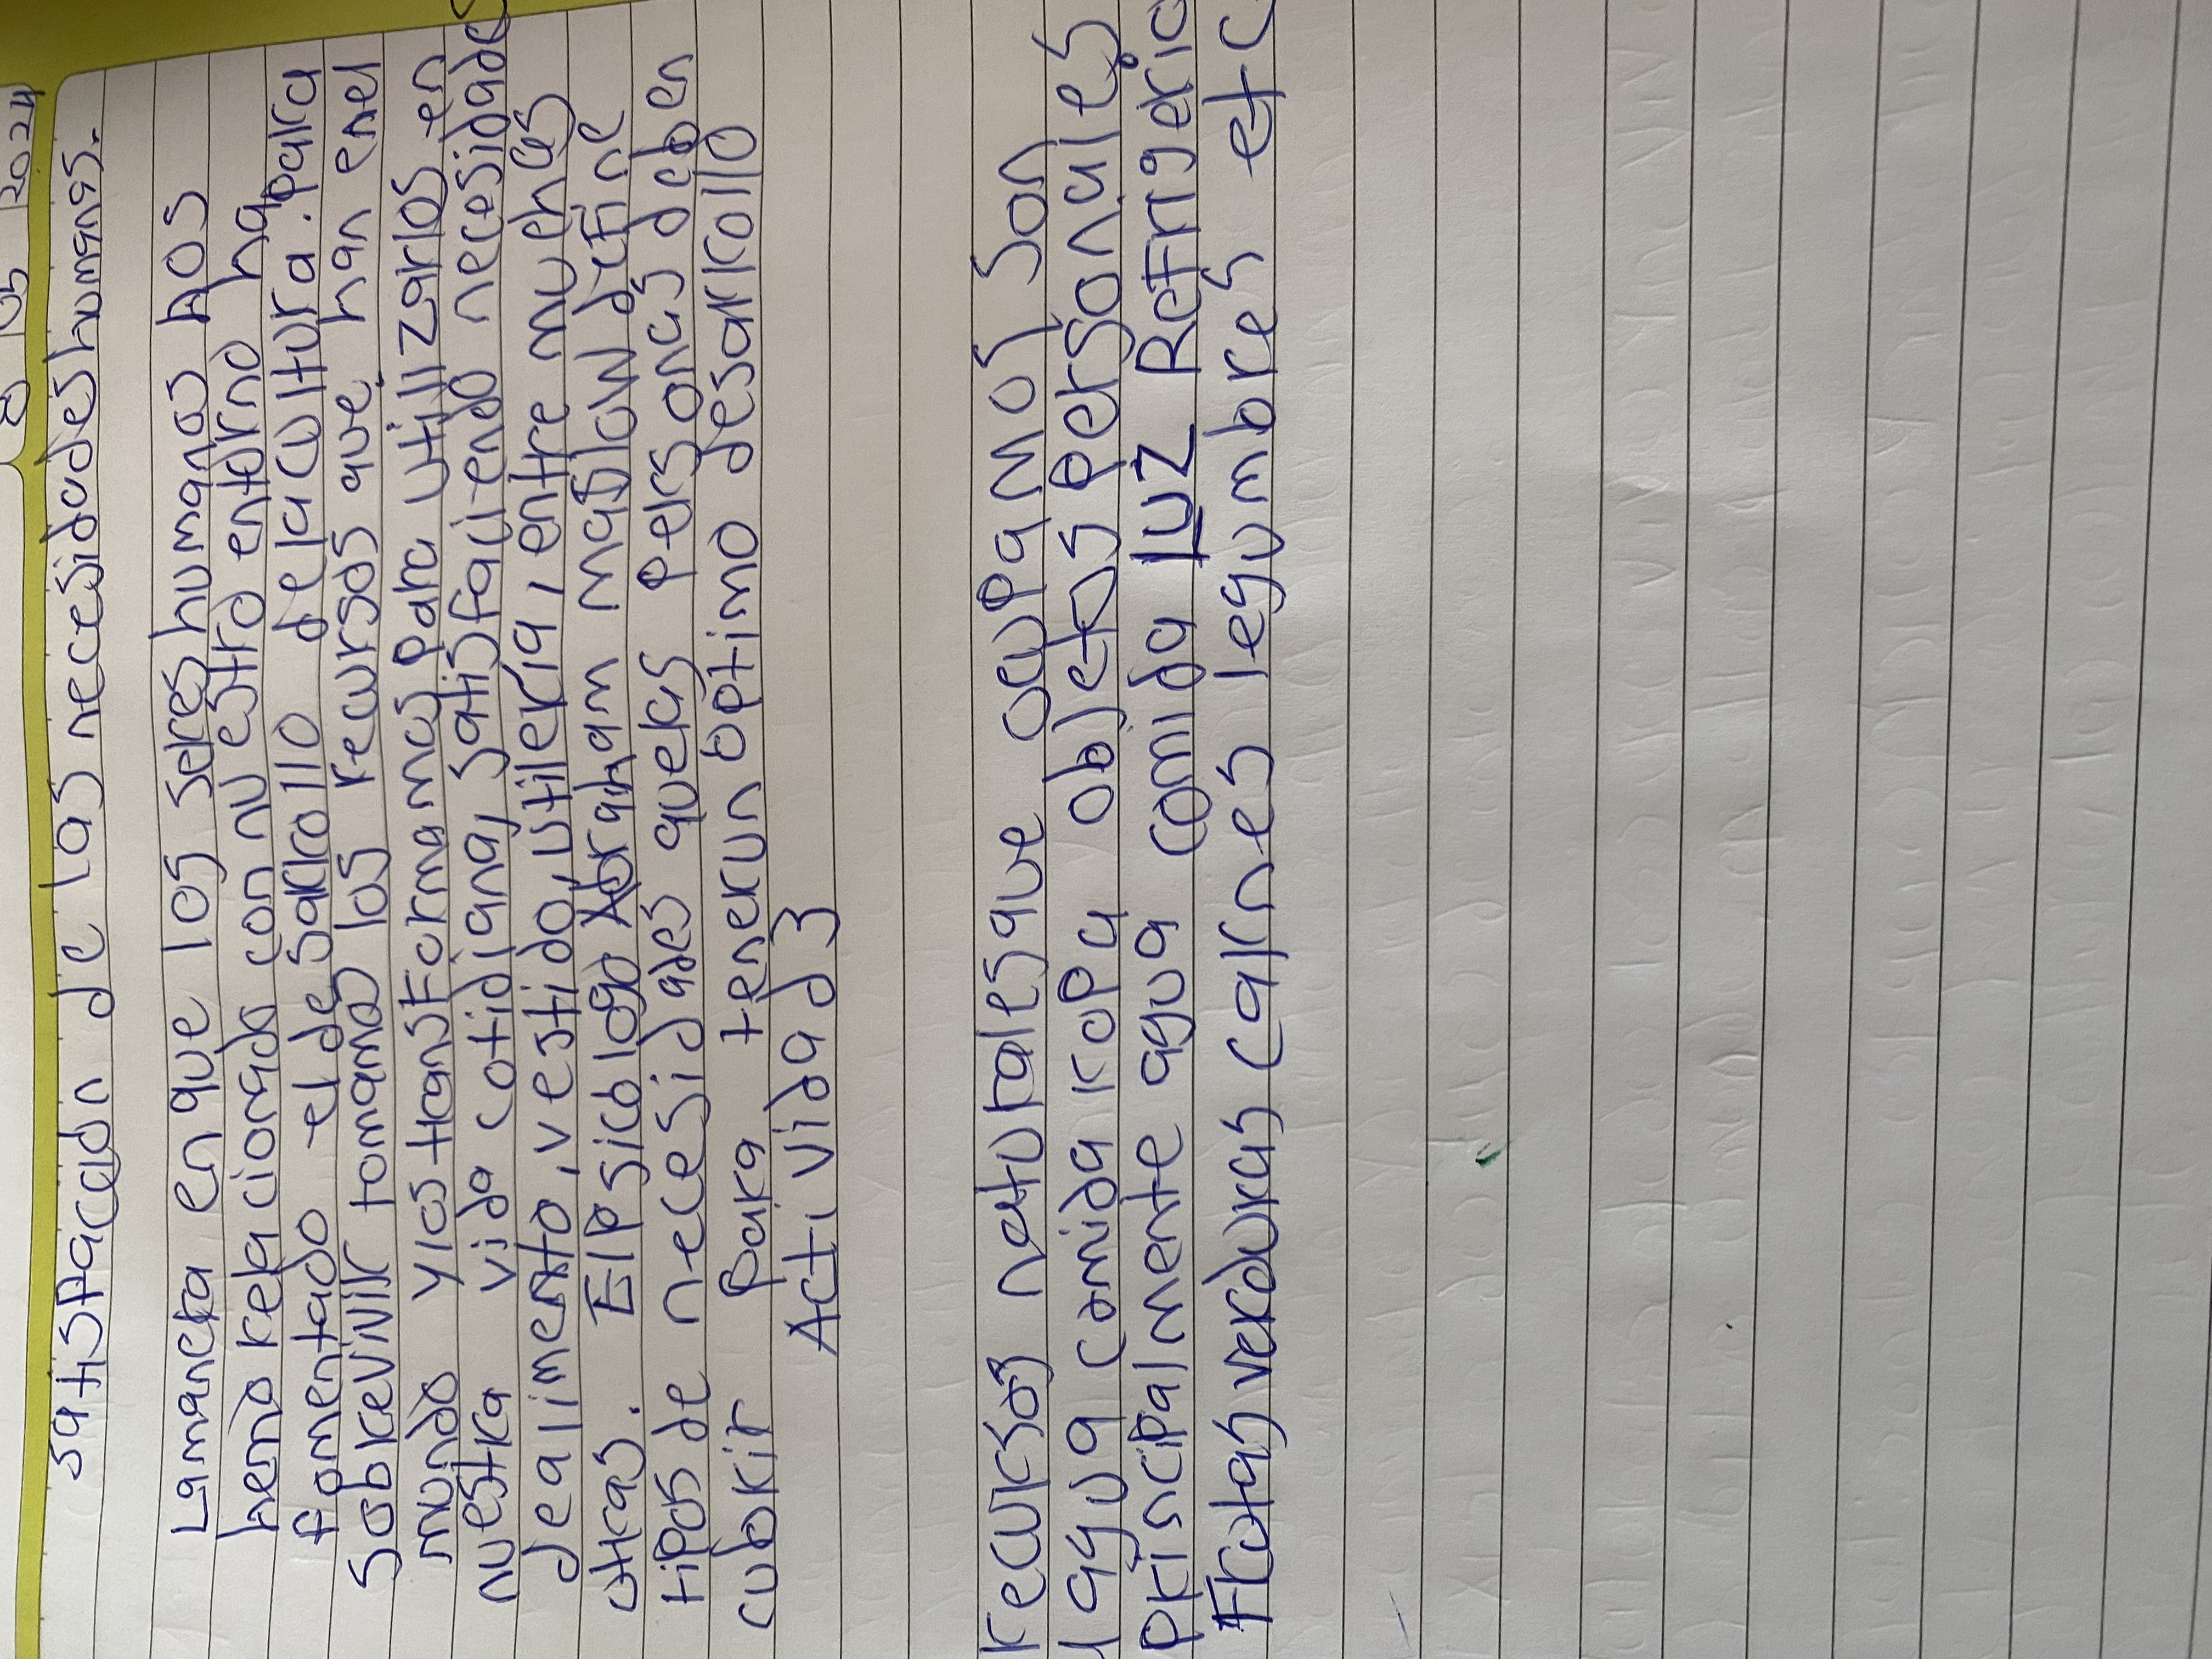 05 2024
satisfaccón de las necesidades humanas.
La manera en que los seres humanos nos
hemo relacionado con nuestro entorno ha
fomentado el desarrollo de la cultura. para
sobrevivir tomamos los recursos que han en el
mundo y los transformamos para utilizarlos en
nuestra vida cotidiana, satisfaciendo necesidade
de alimento, vestido, utilería, entre muchas
otras. El Psicólogo Abraham maslow define
tipos de necesidades que las personas deben
cubrir para tener un óptimo desarrollo
Actividad 3
Recursos naturales que ocupamos son
agua comida ropa objetos personales
principalmente agua comida luz Refrigerio
Frutas verduras carnes legumbres etc